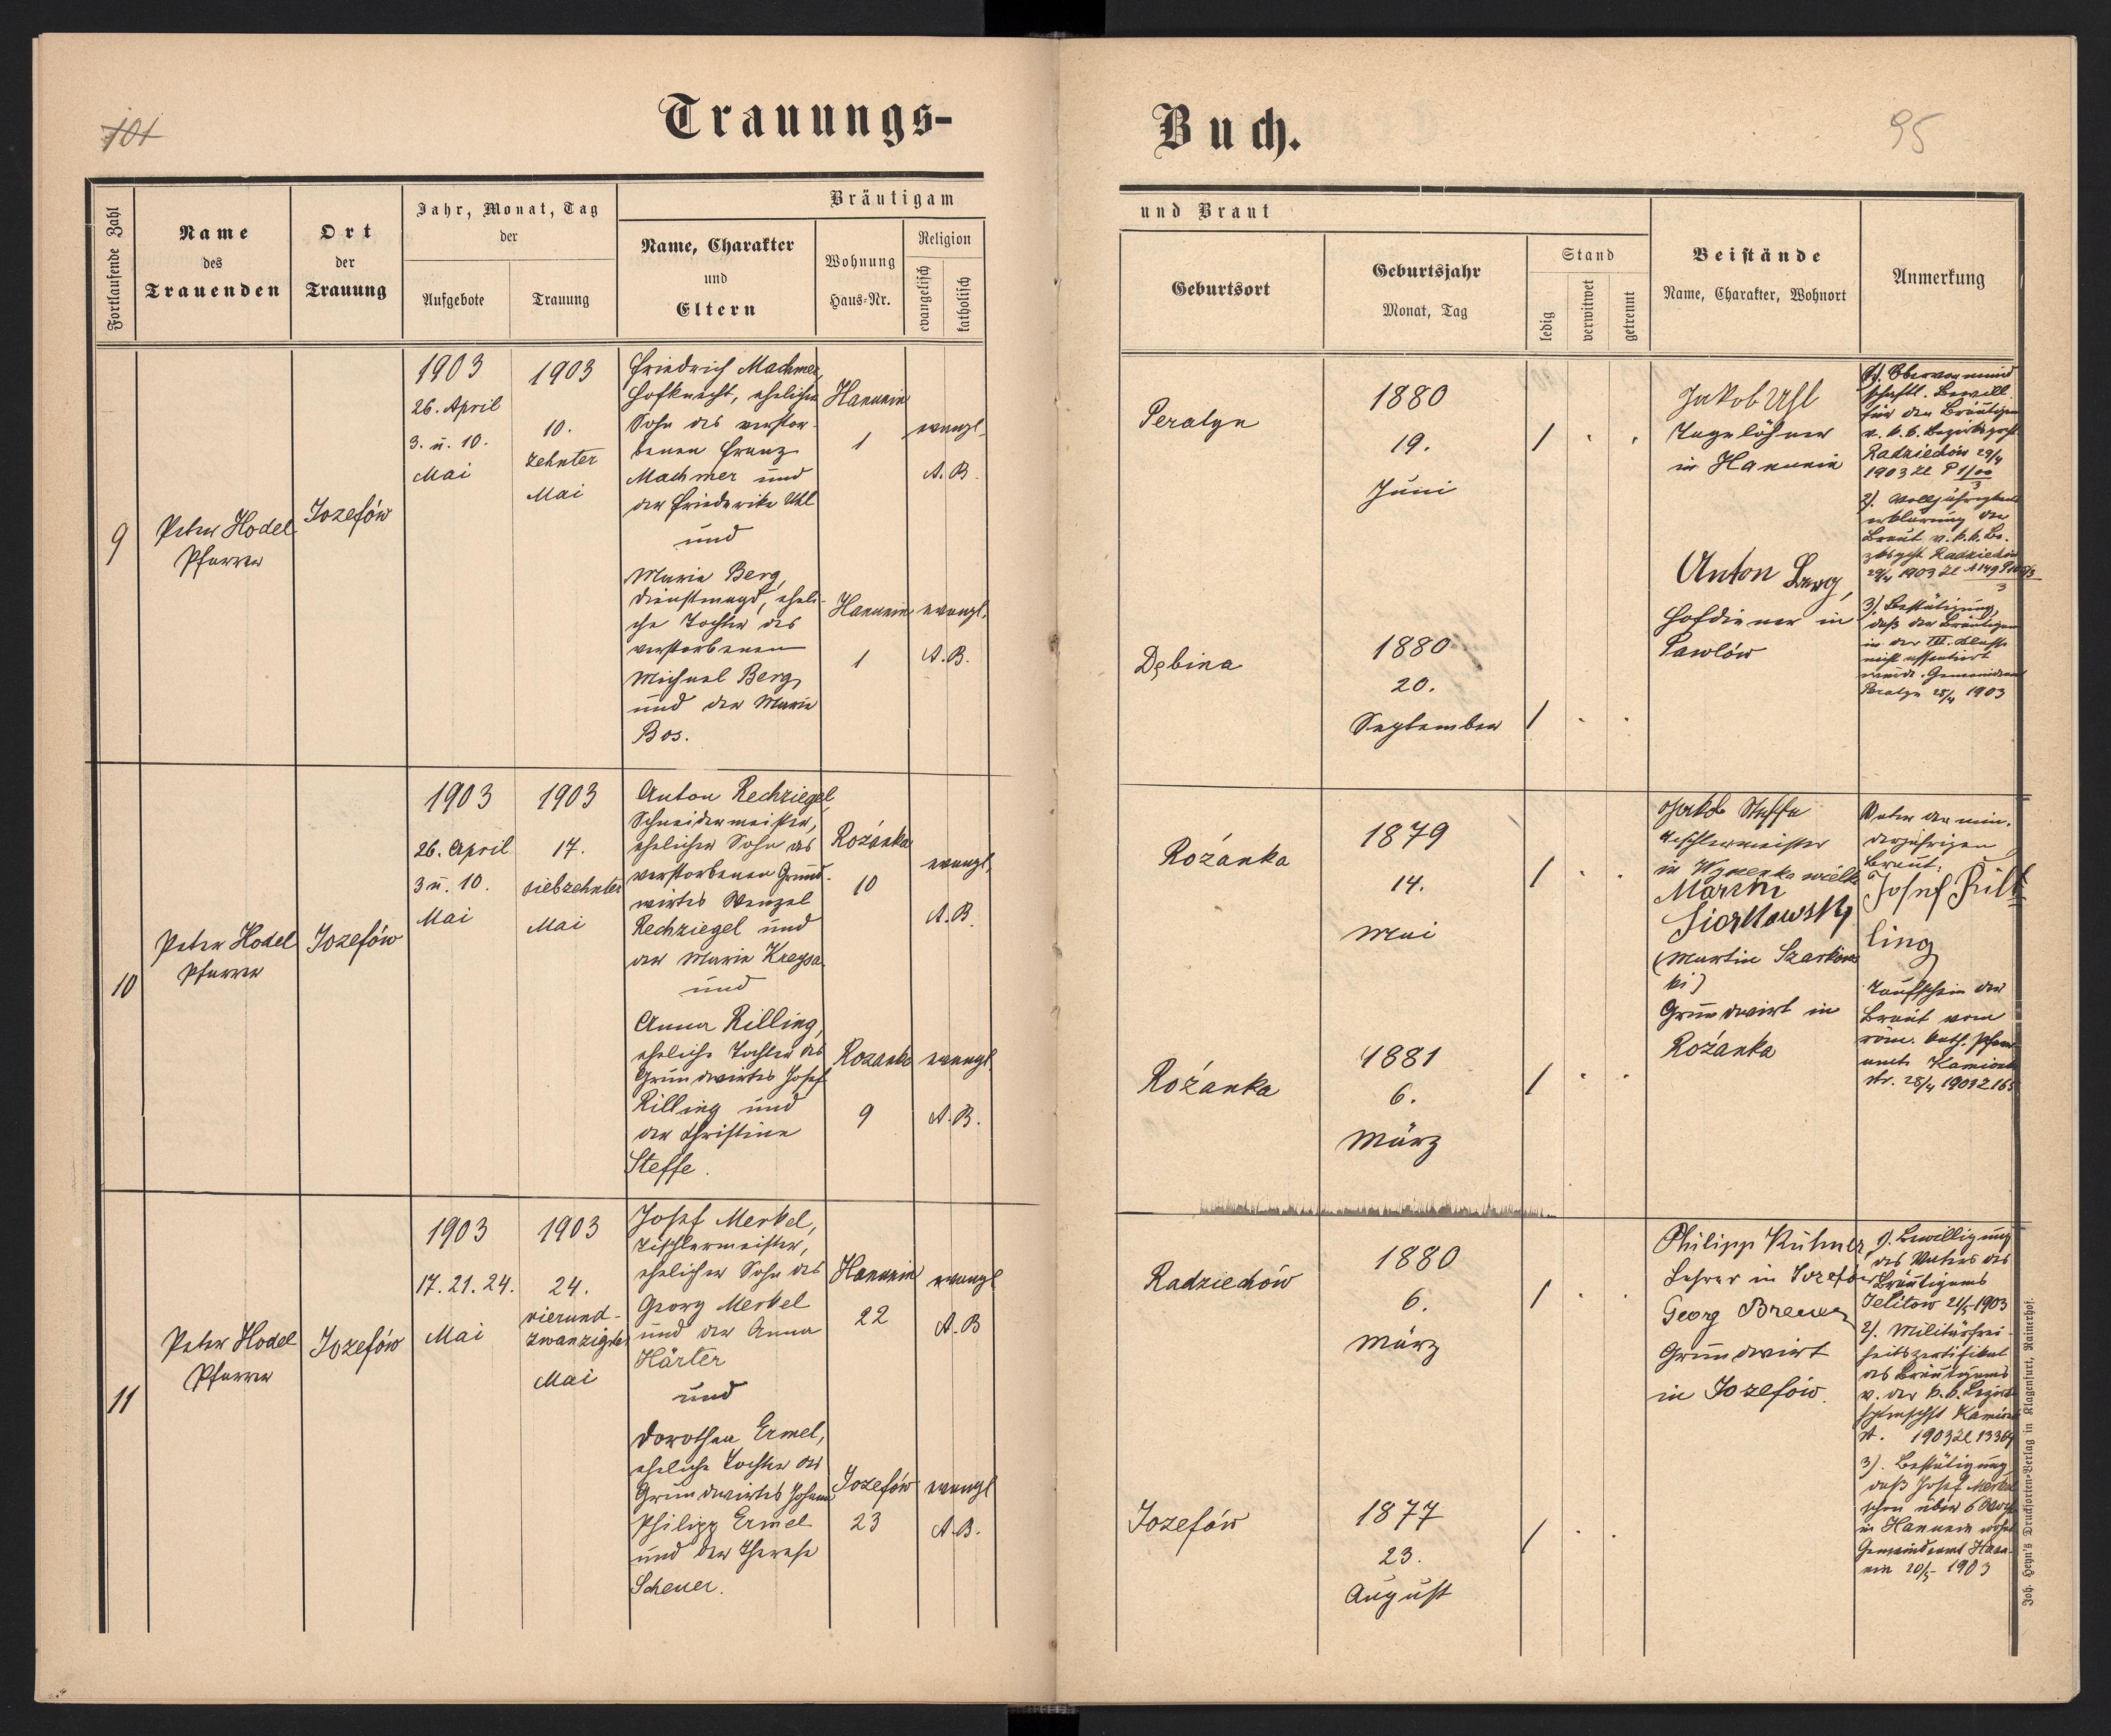 101
Trauungs-
Buch.
95
Fortlaufende Zahl
Name
des
Trauenden
Ort
der
Trauung
Jahr, Monat, Tag
der
Aufgebote
Trauung
Bräutigam
Name, Charakter
und
Eltern
Wohnung
Haus-Nr.
Religion
evangelisch
katholisch
und Braut
Geburtsort
Geburtsjahr
Monat, Tag
Stand
ledig
verwitwet
getrennt
Beistände
Name, Charakter, Wohnort
Anmerkung
9
Peter Hodel
Pfarrer
Jozefów
1903
26. April
3. u. 10.
Mai
1903
10.
Zehnter
Mai
Friedrich Machmer,
Hofknecht, ehelicher
Sohn des verstor-
benen Franz
Machmer und
der Friederike Uhl
und
Marie Berg,
Dienstmagd, eheli-
che Tochter des
verstorbenen
Michael Berg
und der Marie
Bos.
Hanunin
1
evangl.
A. B.
Hanunin
1
evangl.
A. B.
Peratyn
1880
19.
Juni
Dębina
1880
20.
September
Jakob Uhl
Tagelöhner
in Hanunin
Anton Berg,
Hofdiener in
Pawlów
1). Obervormund
schaftl. Bewill.
für den Bräutigam
v. k. k. Bezirksgcht
Radziechów 29/4
1903 Zl P 1/00
3
2). Volljährigkeits
erklärung der
Braut v. k. k. Be-
zksgcht Radziechów
29/4 1903 Zl
3
3). Bestätigung,
daß der Bräutigam
in der III. Klasse
nicht assentiert
wurde. Gemeindeamt
Peratyn 25/4 1903
10
Peter Hodel
Pfarrer
Jozefów
1903
26. April
3 u. 10.
Mai
1903
17.
siebzehnter
Mai
Anton Rechziegel,
Schneidermeister,
ehelicher Sohn des
verstorbenen Grund-
wirtes Wenzel
Rechziegel und
der Marie Krepsa
und
Anna Rilling,
eheliche Tochter des
Grundwirtes Josef
Rilling und
der Christine
Steffe.
Rozánka
10
evangl.
A. B.
Rozanka
9
evangl.
A. B.
Rozánka
1879
14.
Mai
Rozánka
1881
6.
März
Jakob Steffe
Tischlermeister
in wielki
Marcin
(Martin Szarkows
ki)
Grundwirt in
Rozánka
Vater der min-
derjährigen
Braut:
Josef Rill
ling
Taufschein der
Braut vom
röm. kath. Pfarr-
amte Kamionka
str. 28/4 1903 Z 165
11
Peter Hodel
Pfarrer
Jozefów
1903
17. 21. 24.
Mai
1903
24.
vierund-
zwanzigster
Mai
Josef Merkel,
Tischlermeister,
ehelicher Sohn des
Georg Merkel
und der Anna
Härter
und
Dorothea Ermel,
eheliche Tochter des
Grundwirtes Johann
Philipp Ermel
und der Therese
Scheuer.
Hanunin
22
evangl
A. B
Jozefów
23
evangl
A. B.
Radziechów
1880
6.
März
Jozefów
1877
23.
August
Philipp Kühner,
Lehrer in Jozefów
Georg Brewer
Grundwirt
in Jozefów.
1). Bewilligung
des Vaters des
Bräutigams
Jelitow 21/5 1903
2). Militärfrei-
heitszertifikat
des Bräutigams
v. der k. k. Bezirks
hptmschft Kamionka
st. 1903 Zl 13364
3). Bestätigung
daß Josef Merkel
schon über 6 Woch
in Hanunin wohnt
Gemeindeamt Hanu-
nin 20/5 1903
Joh. Heyn's Drucksorten-Verlag in Klagenfurt, Rainerhof.